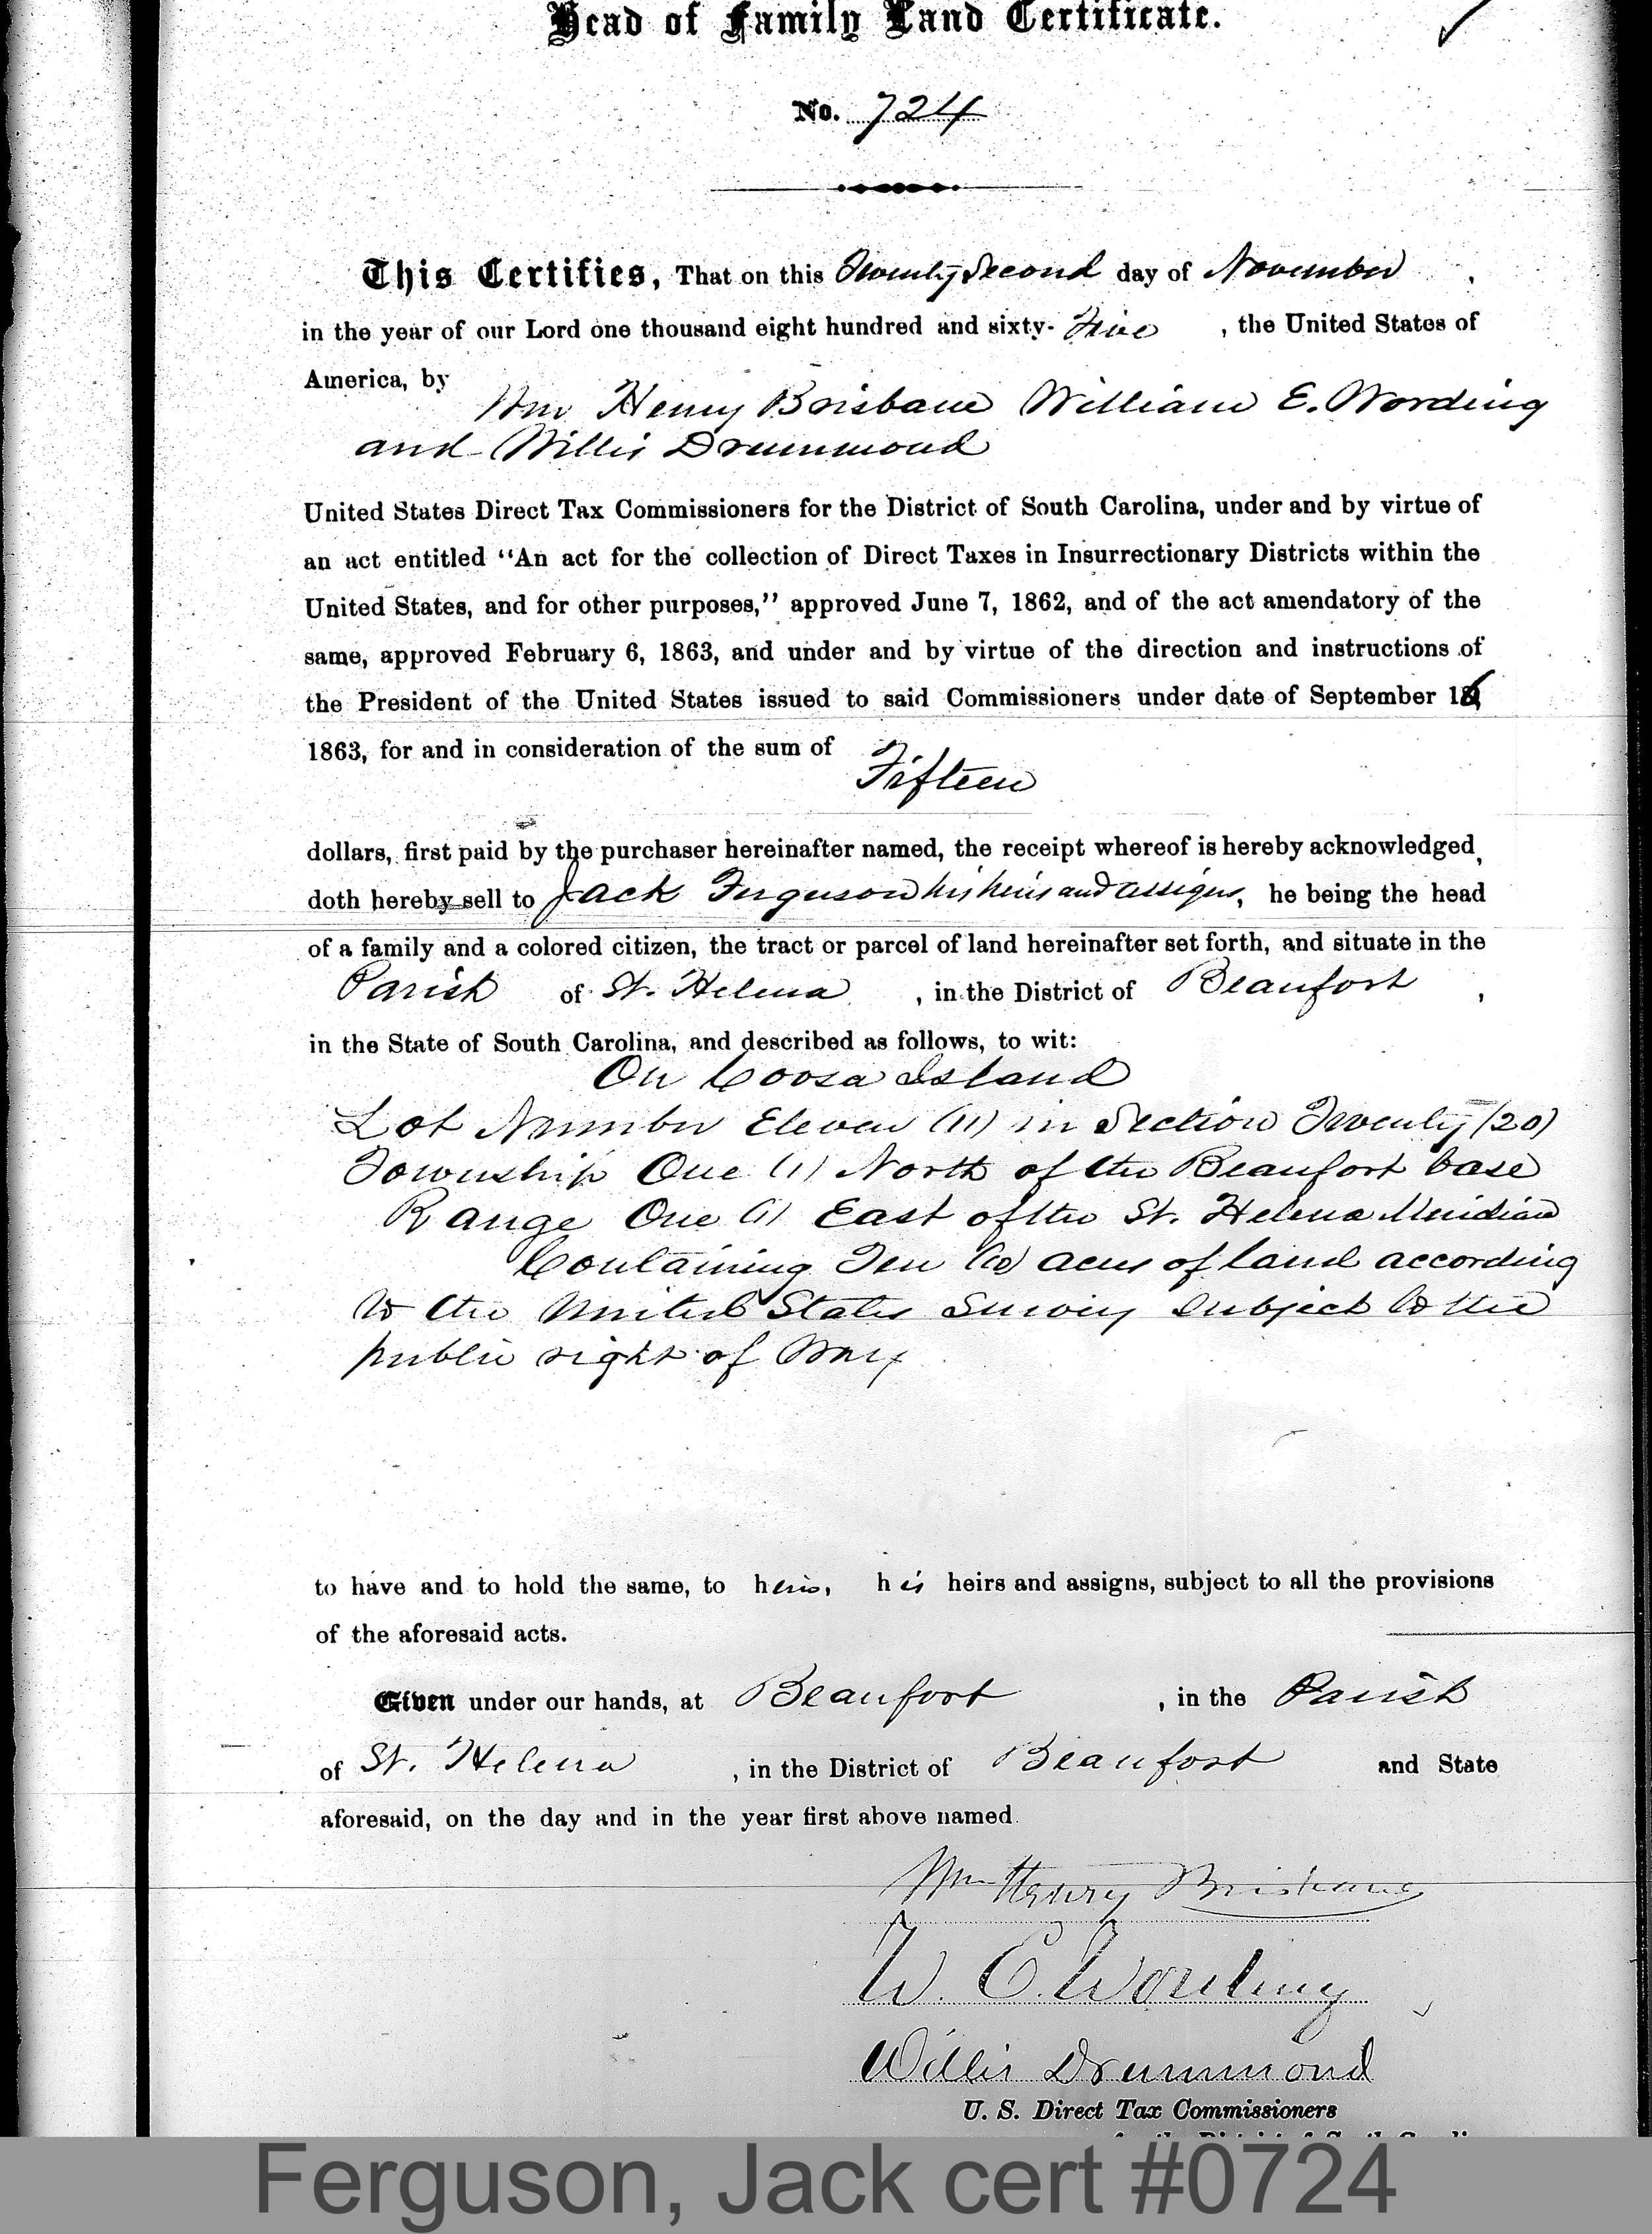 Head of Family Land Certificate.
No. 724
This Certifies, That on this Twenty Second day of November ,
in the year of our Lord one thousand eight hundred and sixty- Five , the United States of
America, by
Wm Henry Brisbane William E. Wording
and Willis Drummond
United States Direct Tax Commissioners for the District of South Carolina, under and by virtue of
an act entitled “An act for the collection of Direct Taxes in Insurrectionary Districts within the
United States, and for other purposes,” approved June 7, 1862, and of the act amendatory of the
same, approved February 6, 1863, and under and by virtue of the direction and instructions of
the President of the United States issued to said Commissioners under date of September 16
1863, for and in consideration of the sum of
Fifteen
dollars, first paid by the purchaser hereinafter named, the receipt whereof is hereby acknowledged,
doth hereby sell to Jack Ferguson his heirs and assigns, he being the head
of a family and a colored citizen, the tract or parcel of land hereinafter set forth, and situate in the
Parish of St. Helena , in the District of Beaufort ,
in the State of South Carolina, and described as follows, to wit:
On Coosa Island
Lot Number Eleven (11) in Section Twenty (20)
Township One (1) North of the Beaufort base
Range One (1) East of the St. Helena Meridian
Containing Ten (10) acres of land according
to the United States Survey Subject to the
public right of Way
to have and to hold the same, to him, his heirs and assigns, subject to all the provisions
of the aforesaid acts.
Given under our hands, at Beaufort , in the Parish
of St. Helena , in the District of Beaufort and State
aforesaid, on the day and in the year first above named.
Wm Henry Brisbane
W. E. Wording
Willis Drummond
U. S. Direct Tax Commissioners
Ferguson, Jack cert #0724